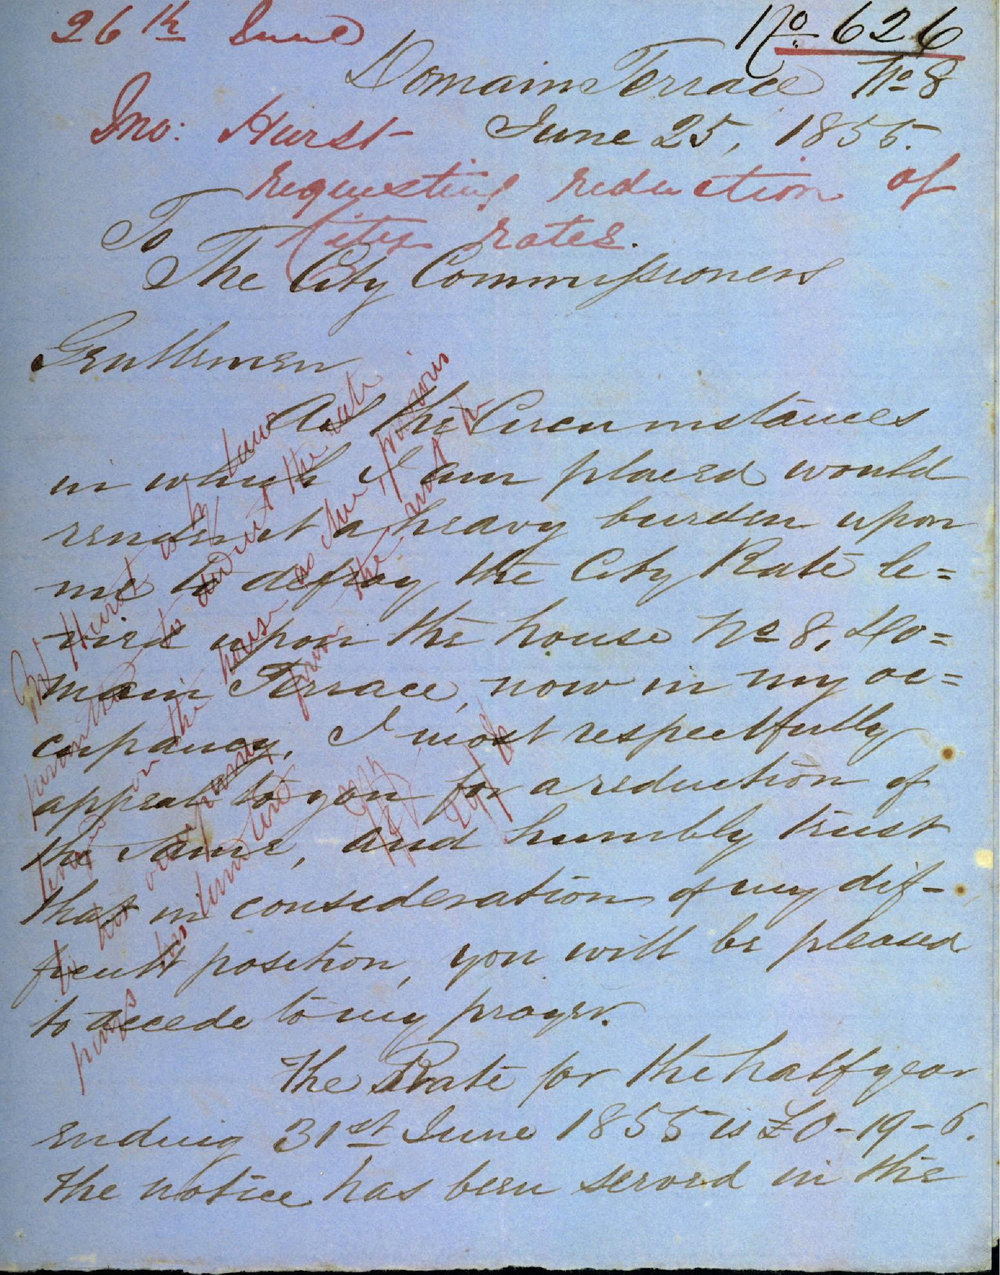 26th June
No 626
Domain Terrace No 8
Jno: Hurst
June 25, 1855.
requesting reduction of
City rates.
To
The City Commissioners
Gentlemen
As the Circumstances
in which I am placed would
render it a heavy burden upon
me to defray the City Rate le=
vied upon the house No 8, Do=
main Terrace, now in my oc=
cupancy, I most respectfully
appeal to you for a reduction of
the same, and humbly trust
that in consideration of my dif-
ficult position, you will be pleased
to accede to my prayer.
The Rate for the half year
ending 31st June 1855 is £0-19-6.
The notice has been served in the
Mr Hurst is by law
to the rate
on the house as he
to his occupancy from the